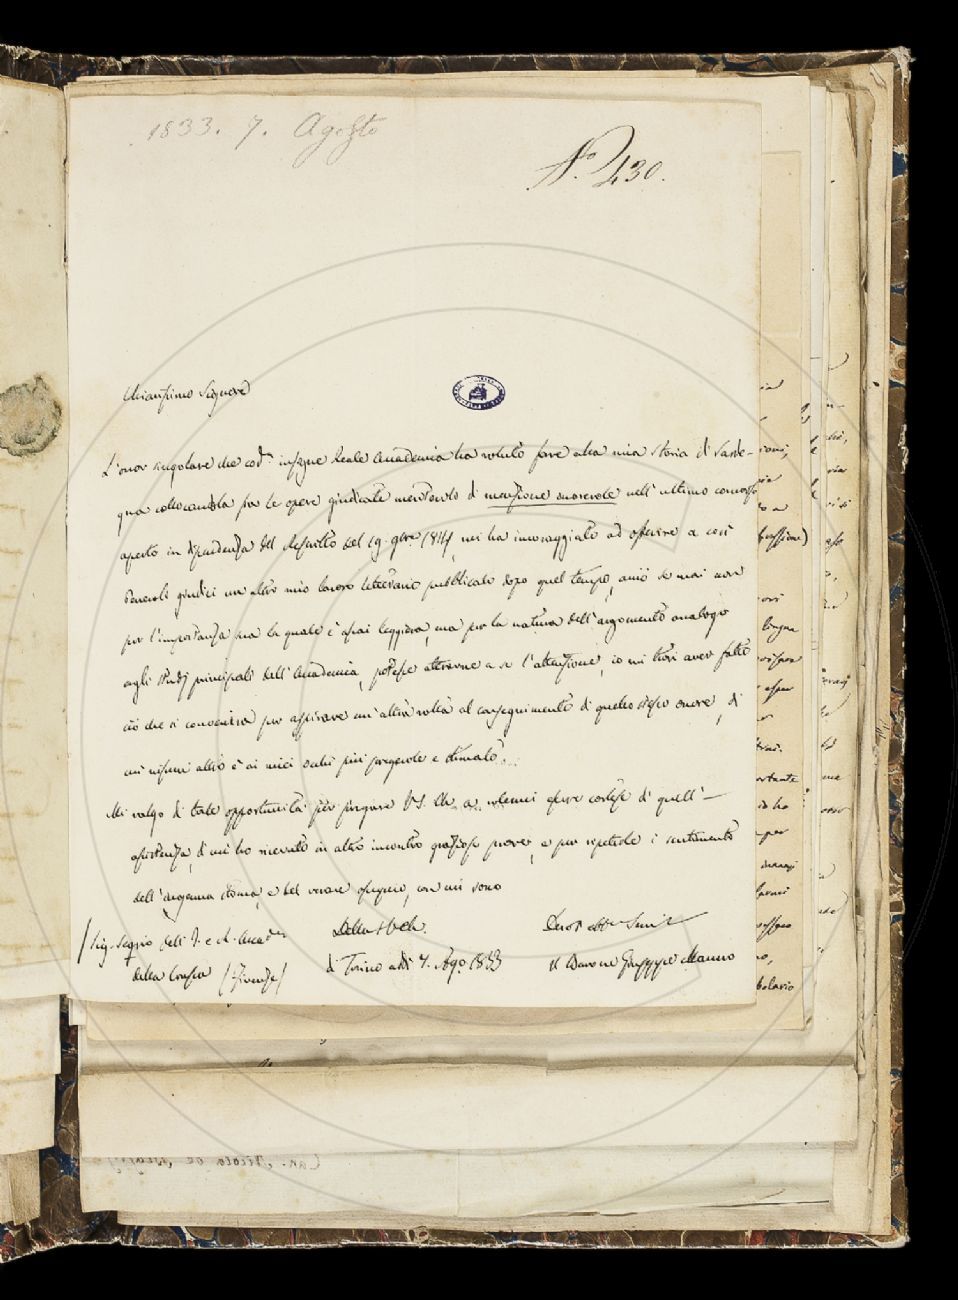 1833. 7. Agosto
N.° 430.
Chiarissimo Signore
L'onor singolare che cod.a insigne Reale Accademia ha voluto fare alla mia storia di Sarde-
gna collocandola fra le opere giudicate meritevoli di menzione onorevole nell'ultimo concorso
aperto in dipendenza del Rescritto del 19. 9bre 1814, mi ha incoraggiato ad offerire a così
benevoli giudici un altro mio lavoro letterario pubblicato dopo quel tempo, se mai non
per l'importanza sua la quale è assai leggiera, ma per la natura dell'argomento analogo
agli studj principali dell'Accademia, potesse attirarne a se l'attenzione, io mi trovi aver fatto
ciò che si conveniva per aspirare un'altra volta al conseguimento di quello stesso onore, di
cui nissun altro è ai miei occhi più pregevole e stimato.
Mi valgo di tale opportunità per pregare V. S. Ch. a volermi essere cortese di quell'
assistenza, di cui ho ricevuto in altro incontro graziose prove, e per ripeterle i sentimenti
dell' stima, e del vivace ossequio, con cui sono
Della S. V. Ch.
Devot. obb. Servit.
Sig. Segrio dell'I. e R. Accad.
della Crusca (Firenze)
di Torino addì 7. Ago. 1833
Il Barone Giuseppe Manno
lingua